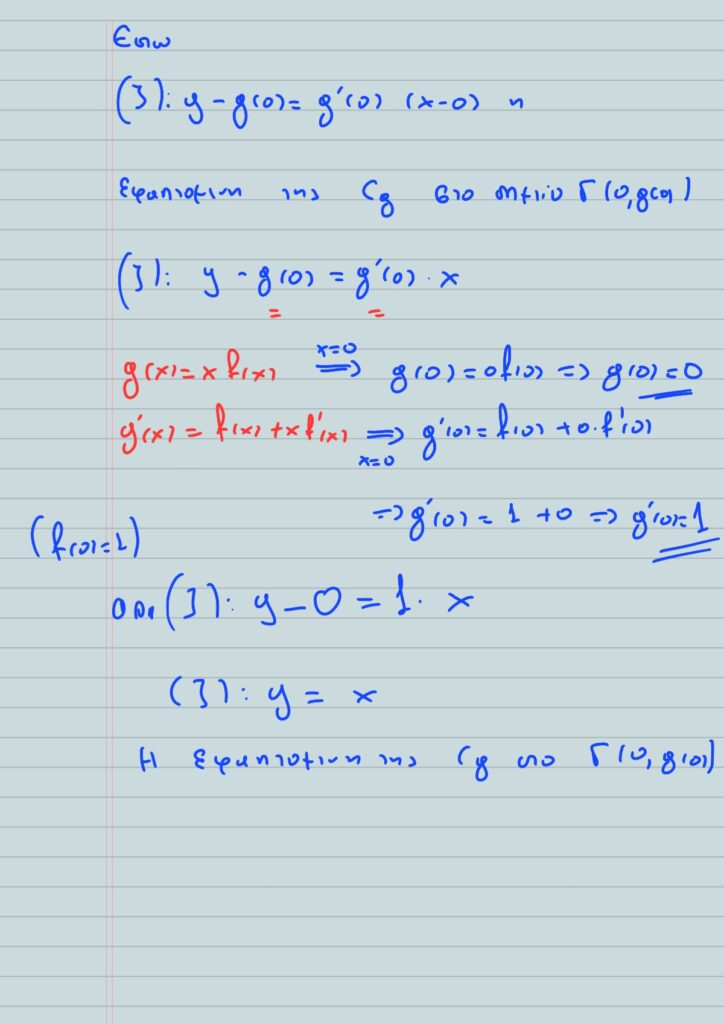 Έστω
(ζ): y - g(0) = g'(0) (x-0) η
Εφαπτομένη της Cg στο σημείο Γ(0, g(0))
(ζ): y - g(0) = g'(0) · x
g(x) = x f(x) x=0 ⟹ g(0) = 0 f(0) ⇒ g(0) = 0
g'(x) = f(x) + x f'(x) ⟹ x=0 g'(0) = f(0) + 0·f'(0)
⇒ g'(0) = 1 + 0 ⇒ g'(0) = 1
(f(0) = 1)
Άρα (ζ): y - 0 = 1 · x
(ζ): y = x
Η Εφαπτομένη της Cg στο Γ(0, g(0))